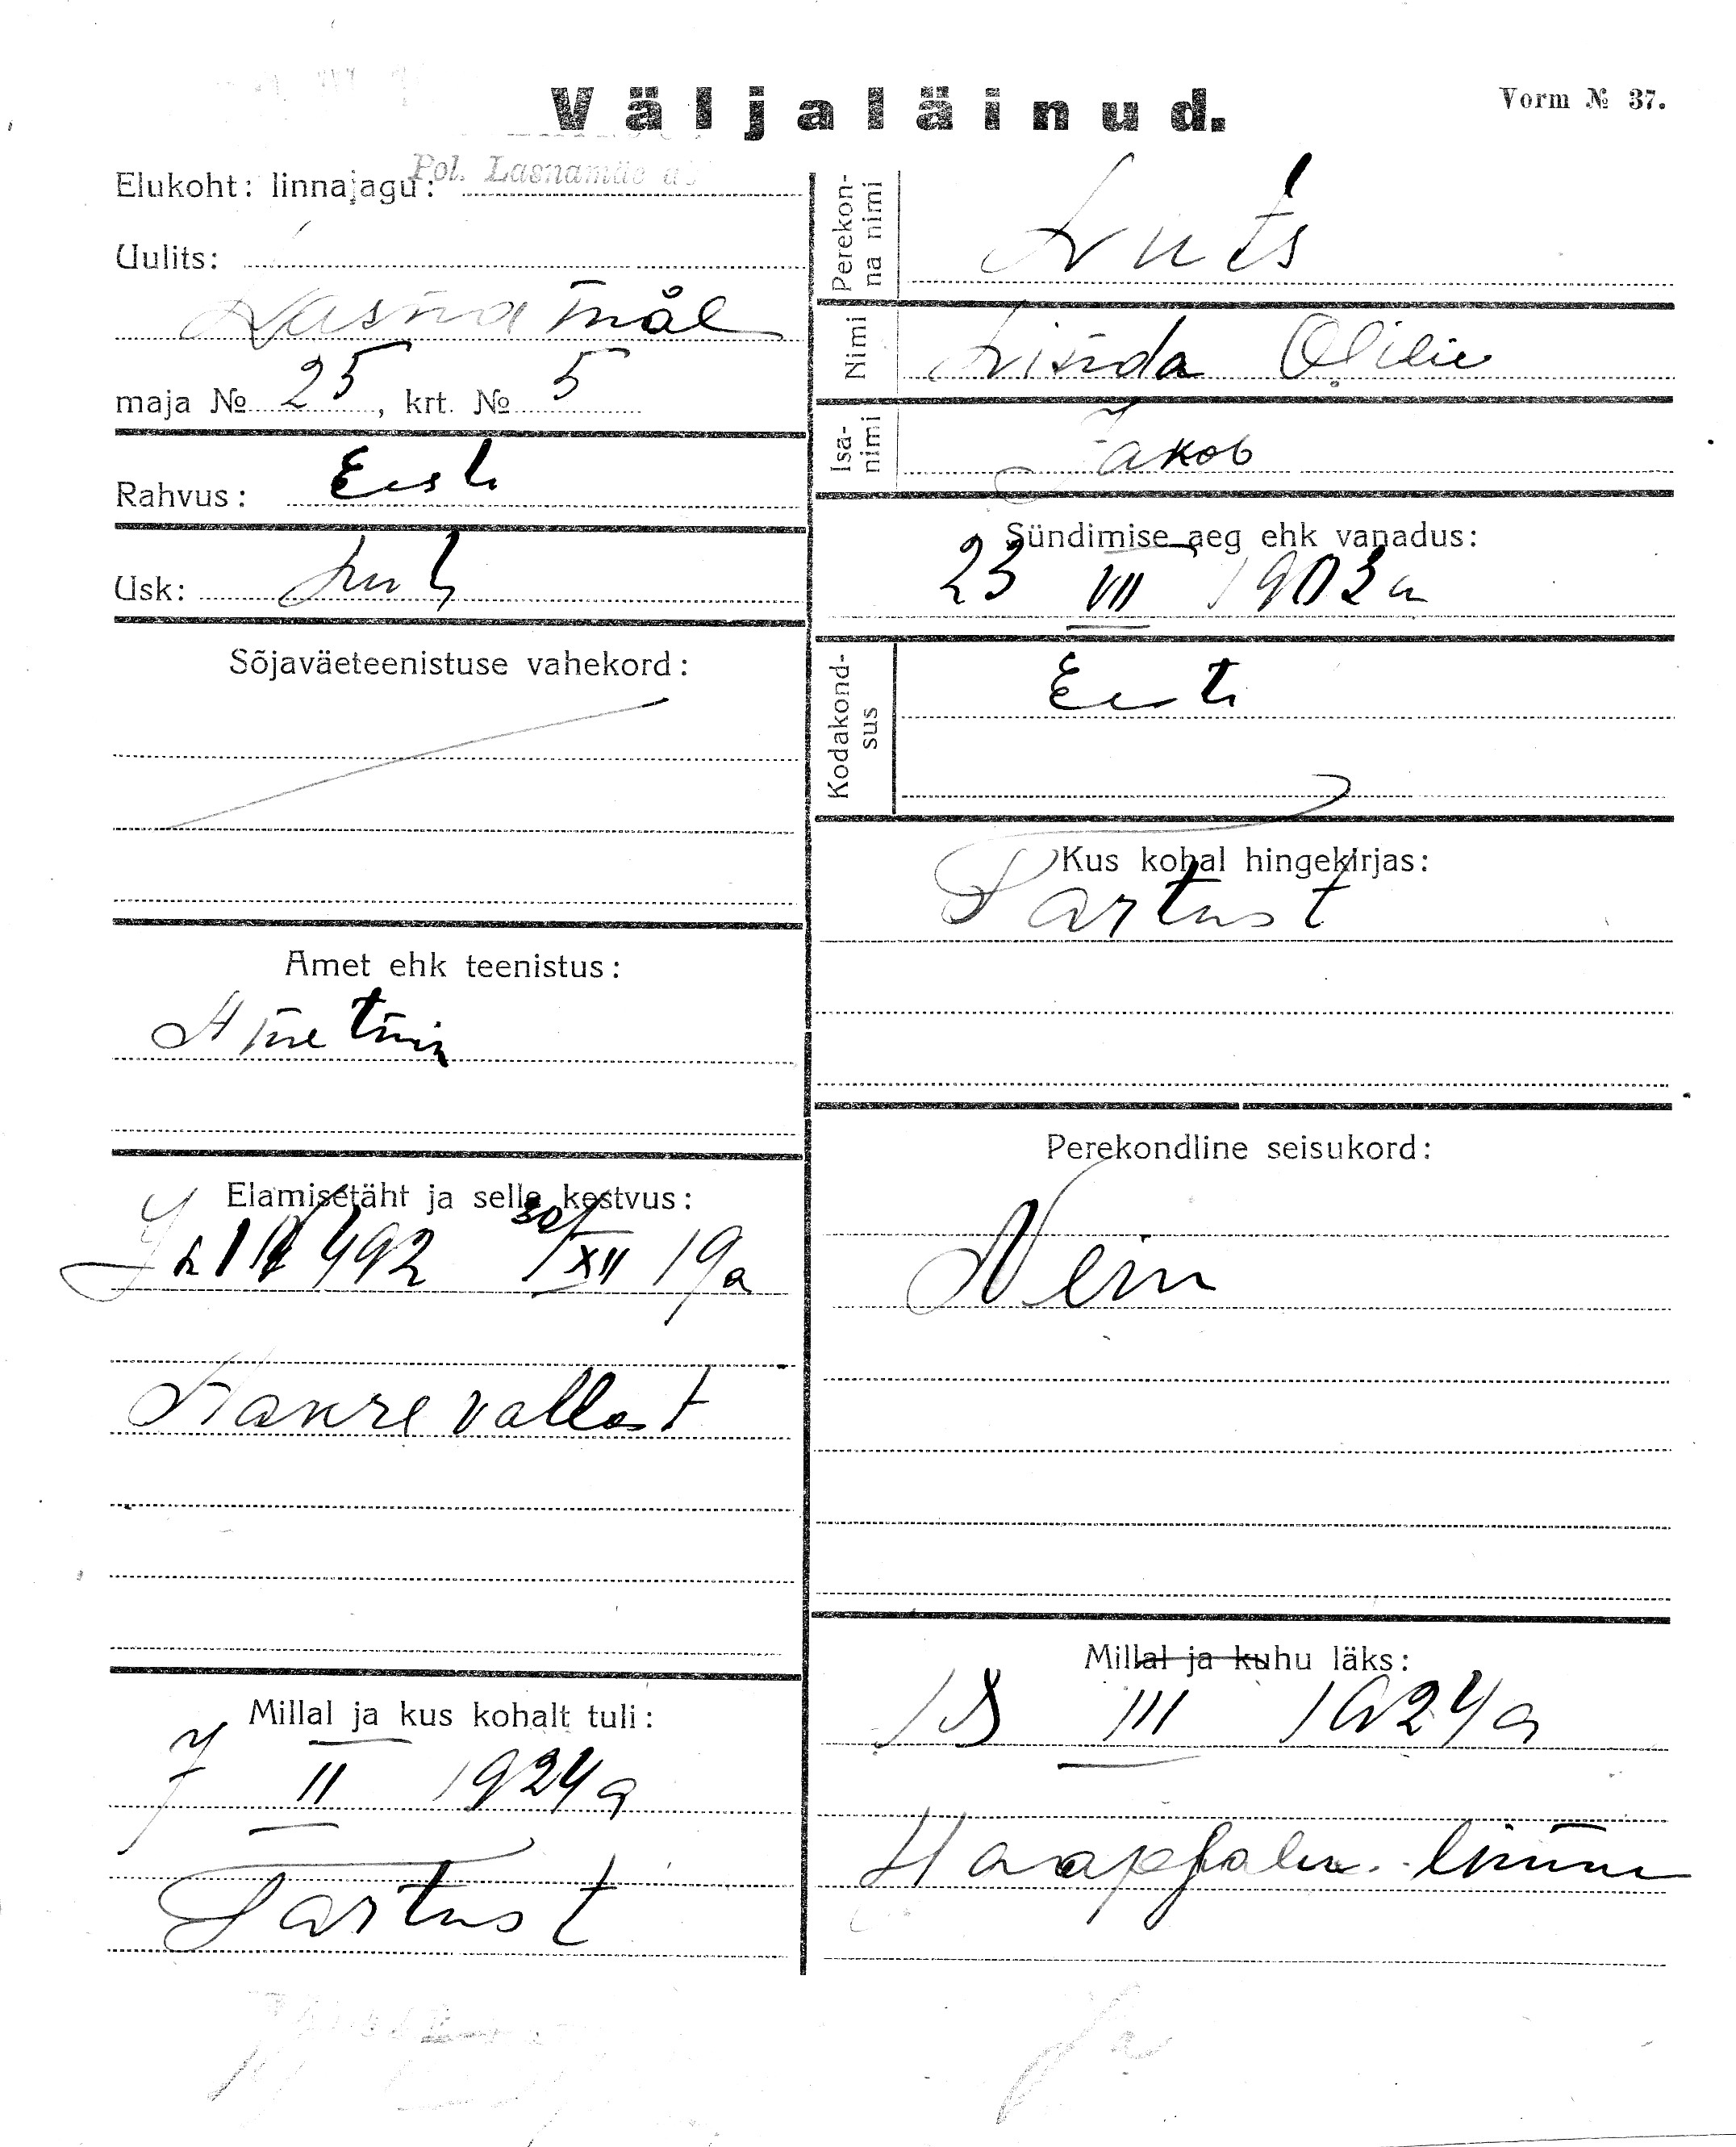 Väljaläinud.
Vorm № 37.
Elukoht: linnajagu: Pol. Lasnamäe
Uulits:
Lasnamäe
maja № 25, krt. № 5
Rahvus: Eesti
Usk: Lut
Sõjaväeteenistuse vahekord:
Amet ehk teenistus:
Ametnik
Elamisetäht ja selle kestvus:
492 30/XII 19a
vallast
Millal ja kus kohalt tuli:
7 II 1924 a
Tartust
Perekonna nimi
Luts
Nimi
Linda
Isanimi
Jakob
Sündimise aeg ehk vanadus:
23 VII 1903 a
Kodakondsus
Eesti
Kus kohal hingekirjas:
Tartust
Perekondline seisukord:
Millal ja kuhu läks:
18 III 1924 a
Haapsalu linna